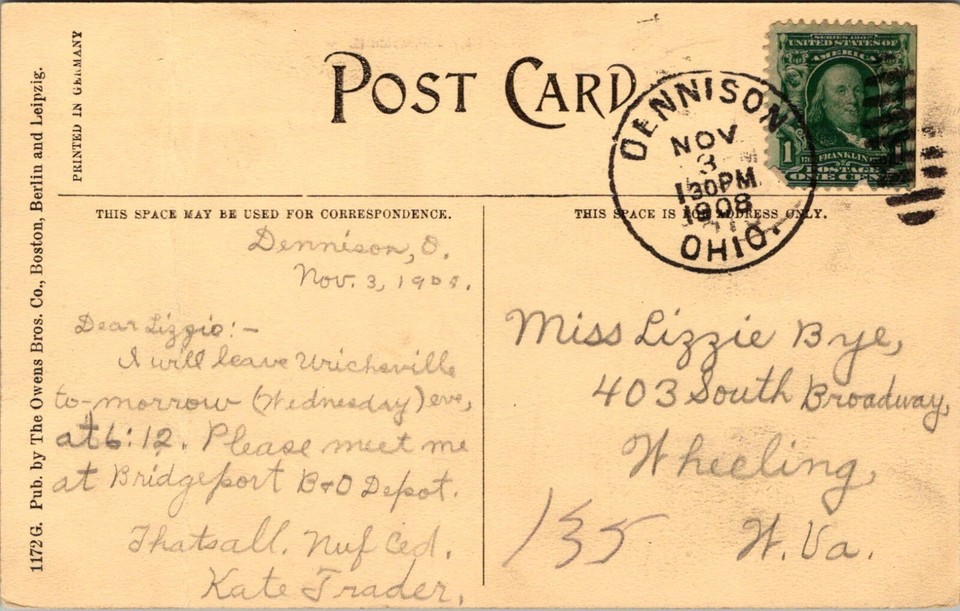 PRINTED IN GERMANY
1172 G. Pub. by The Owens Bros. Co., Boston, Berlin and Leipzig.
POST CARD
DENNISON
NOV
3
130PM
1908
OHIO.
SERIES 1902
UNITED STATES OF
AMERICA
1
FRANKLIN
POSTAGE
ONE CENT
THIS SPACE MAY BE USED FOR CORRESPONDENCE.
Dennison, O.
Nov. 3, 1908.
Dear Lizzie:-
I will leave Urichsville
to-morrow (Wednesday) eve,
at 6:12. Please meet me
at Bridgeport B+O Depot.
Thatsall. Nuf Ced.
Kate Trader.
THIS SPACE IS FOR ADDRESS ONLY.
Miss Lizzie Bye,
403 South Broadway,
Wheeling,
W. Va.
135